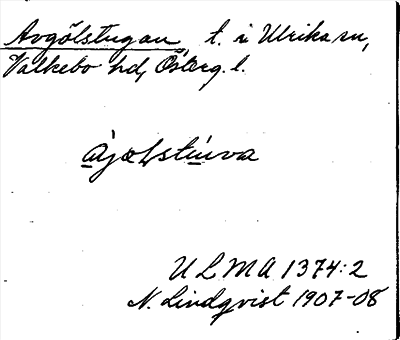 Avgölstugan, t. i Ulrika sn,
Valkebo hd, Österg. l.
ájœl̨stúva
ULMA 1374:2
N. Lindqvist 1907-08